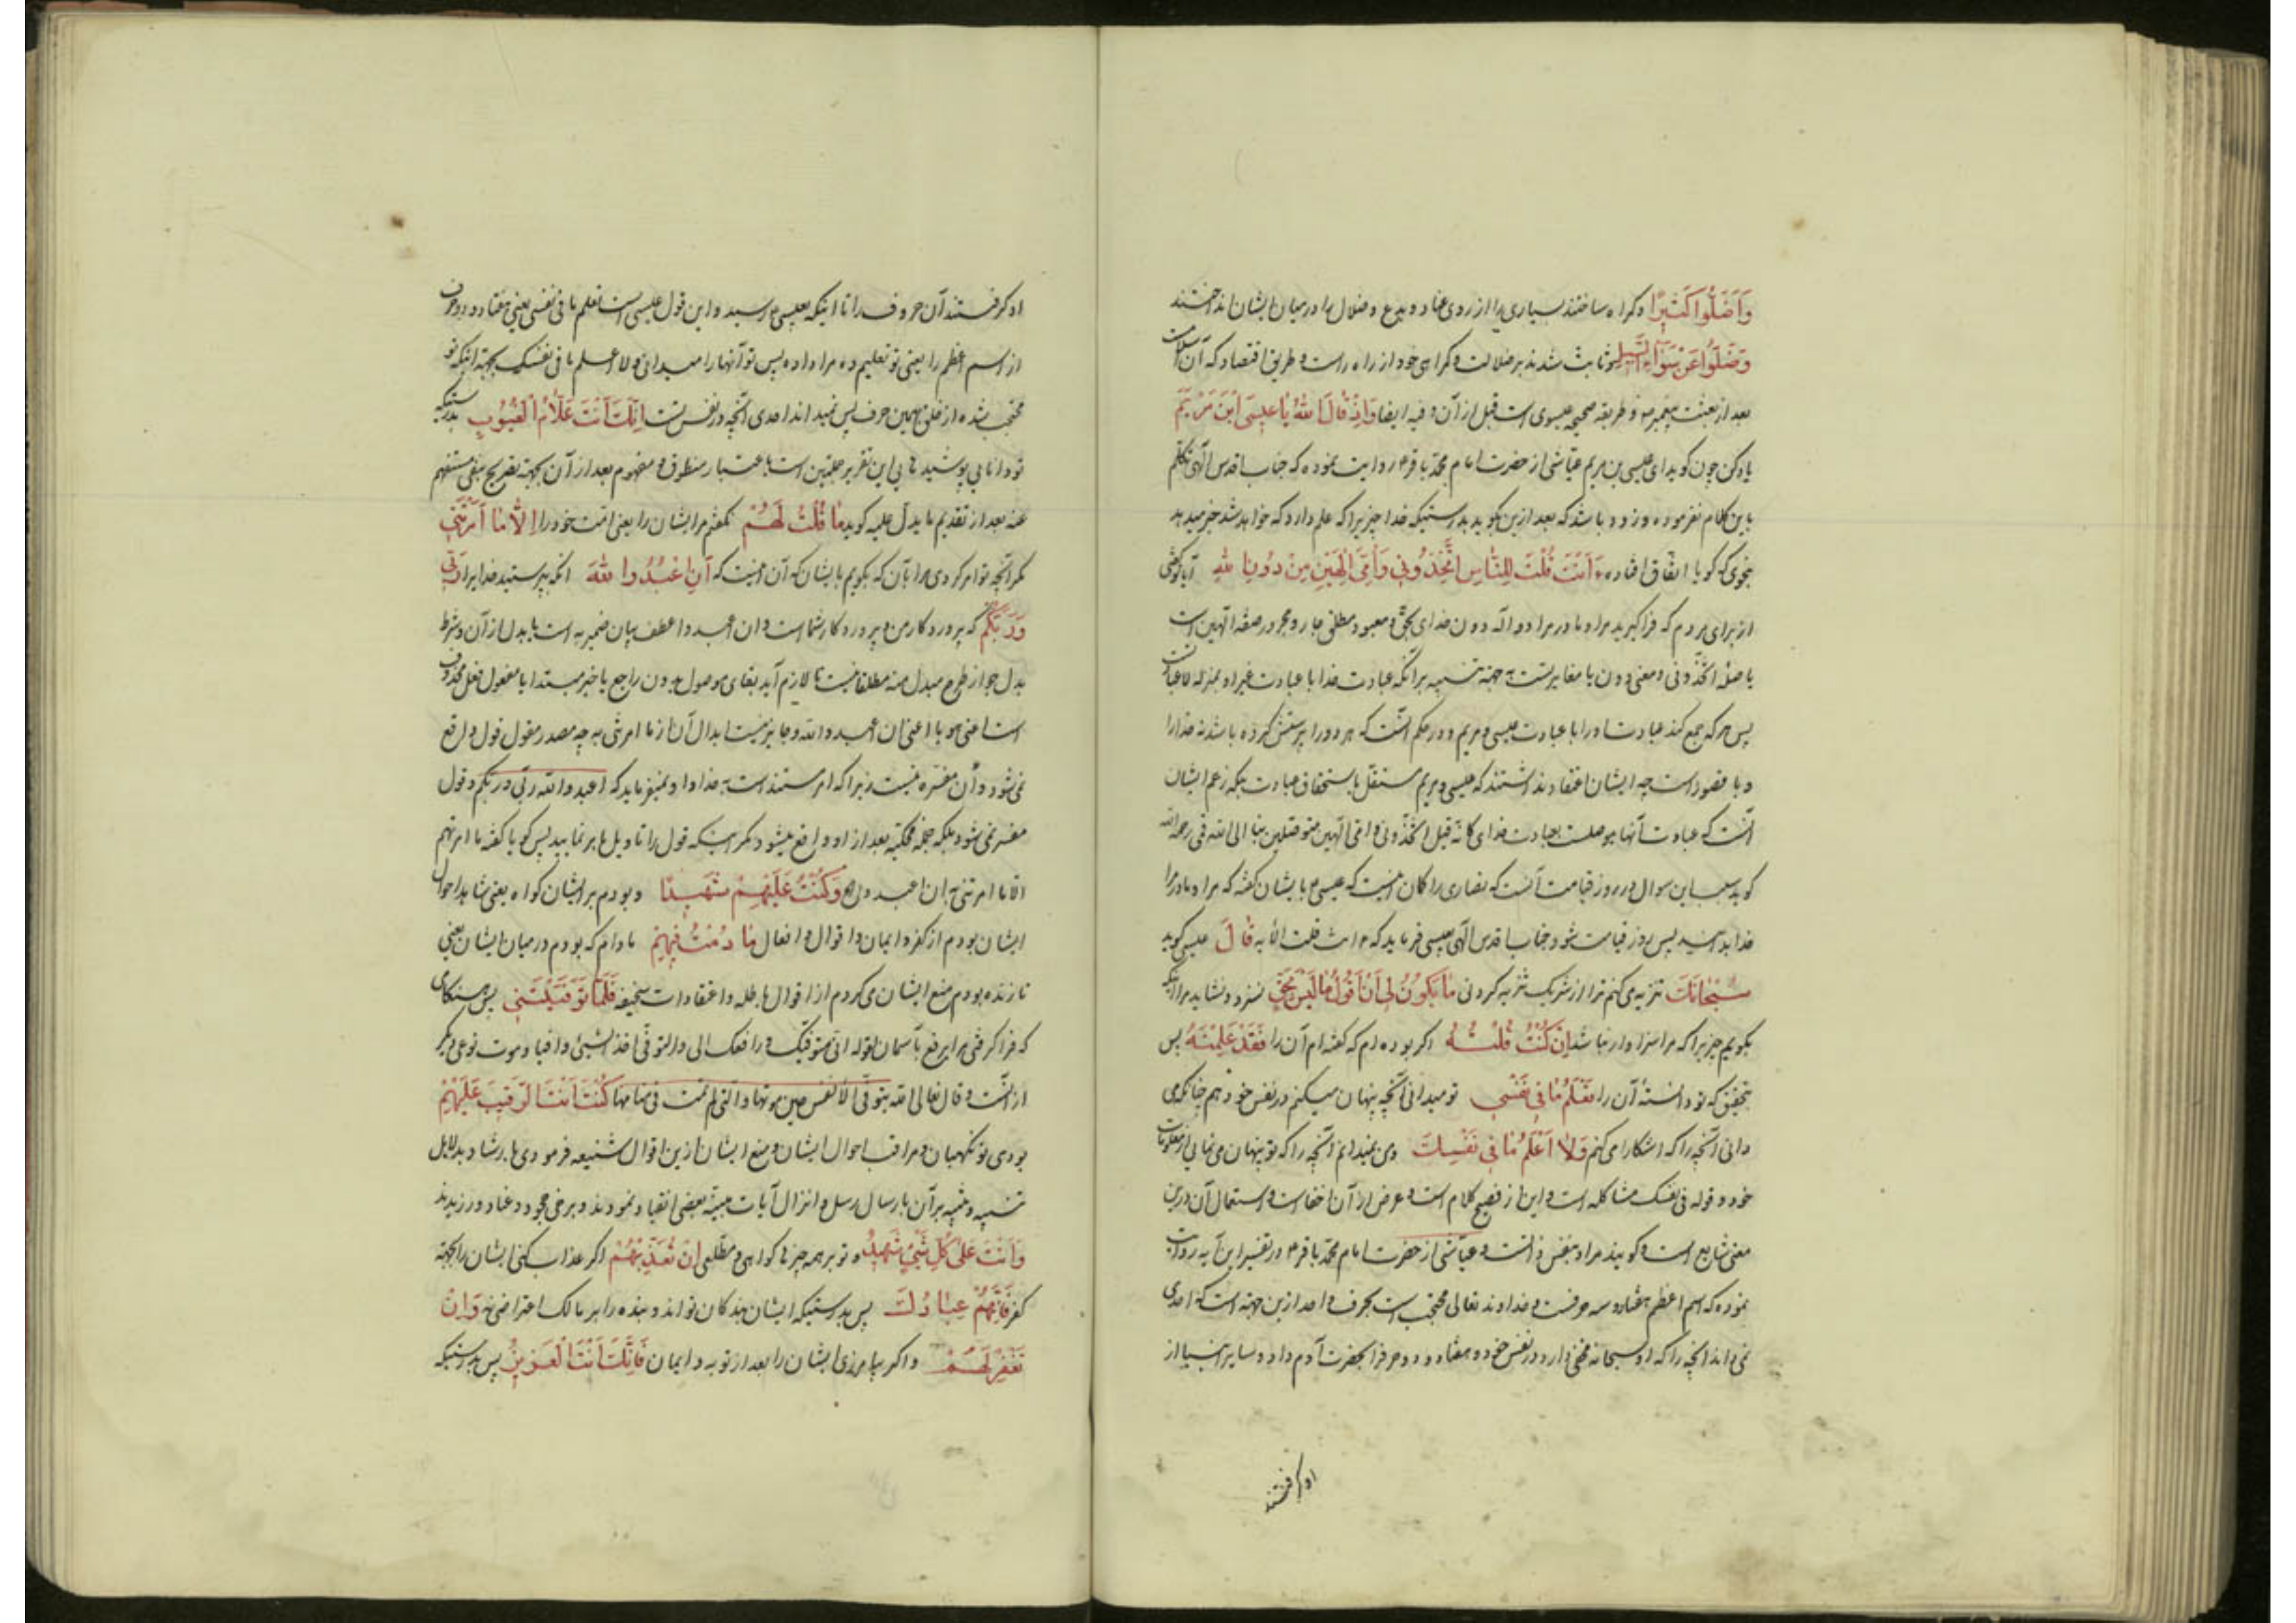 وَأَضَلُّوا كَثِیرًا و کمراه ساختند بسیاری را از روی عناد و بدع و ضلال را در میان ایشان انداختند
وَضَلُّوا عَنْ سَوَآءِ السَّبِیلِ و ثابت شدند بر ضلالت و کمراهی خود از راه راست و طریق اقتصاد که آن اسلامست
بعد از بعثت پیغمبر و طریقه صحیحه عیسوی است قبل از آن و فیه ایضا وَاِذْ قَالَ اللهُ یَا عِیسَی ابْنَ مَرْیَمَ
یاد کن چون کوید ای عیسی بن مریم عیّاشی از حضرت امام محمّد باقر ع روایت نموده که جناب اقدس الٓهی تکلم
باین کلام نفرموده و زود باشد که بعد ازین بکوید بدرستیکه خدا چیزیرا که علم دارد که خواهد شد خبر میدهد
بنحوی که کویا اتّفاق افتاده ءَاَنْتَ قُلْتَ لِلنَّاسِ اتَّخِذُونِی وَاُمِّیَ اِلٰهَیْنِ مِنْ دُونِ اللهِ آیا تو کفتی
از برای مردم که فرا کیرید مرا و مادر مرا دو اله دون خدای بحق و معبود مطلق جار و مجرور صفة الٓهین است
یا صلهٔ اتّخذونی و معنی دون یا مغایرتست بجهة تنبیه برانکه عبادت خدا با عبادت غیر او بمنزله لا عبادتست
پس هر که جمع کند عبادت او را با عبادت عیسی و مریم در حکم آنست که هر دو را پرستش کرده باشد نه خدا را
و یا قصور است چه ایشان اعتقاد نداشتند که عیسی و مریم مستقل باستحقاق عبادت بلکه زعم ایشان
آنست که عبادت آنها موصلست بعبادت خدای کانّه قیل اتّخذونی و امّی الٓهین متوصلین بنا الی الله فی رحمه الله
کوید سبب این سوال در روز قیامت آنست که نصاری را کمان اینست که عیسی بایشان کفته که مرا و مادر مرا
خدا بدانید پس روز قیامت شود جناب اقدس الٓهی بعیسی فرماید که ءانت قلت الآیه قَالَ عیسی کوید
سُبْحَانَكَ تنزیه می‌کنم ترا از شریک تنزیه کردنی مَا یَکُونُ لِی اَنْ اَقُولَ مَا لَیْسَ لِی بِحَقٍّ نسزد و نشاید مرا اینکه
بکویم چیزیرا که مرا سزاوار نباشد اِنْ کُنْتُ قُلْتُهُ اکر بوده‌ام که کفته‌ام آن را فَقَدْ عَلِمْتَهُ پس
بتحقیق که تو دانستهٔ آن را تَعْلَمُ مَا فِی نَفْسِی تو میدانی آنچه پنهان میکنم در نفس خود هم چنانکه می
دانی آنچه را که اشکارا می‌کنم وَلَا اَعْلَمُ مَا فِی نَفْسِكَ و من نمیدانم آنچه را که تو پنهان می‌نمایی از معلومات
خود و قوله فی نفسک مشاکله است و این از فصیح کلام است و غرض از آن اخفاست و استعمال آن درین
معنی شایع است و کویند مراد بنفس ذاتست و عیّاشی از حضرت امام محمّد باقر ع در تفسیر این آیه روایت
نموده که اسم اعظم هفتاد و سه حرفست و خداوند تعالی محتجب است بحرف واحد ازین جهة است که احدی
نمی‌داند انچه را که او سبحانه مخفی دارد در نفس خود و هفتاد و دو حرف را بحضرت آدم داد و سایر انبیا از
او کرفتند
او کرفتند آن حروف را تا اینکه بعیسی ع رسید و این قول عیسی است تعلم ما فی نفسی یعنی هفتاد و دو حرف
از اسم اعظم را یعنی تو تعلیم ده مرا داده پس تو آنها را میدانی و لا اعلم ما فی نفسک بجهة اینکه تو
محتجب شده از خلق بهمین حرف پس نمیداند احدی آنچه در نفس تست اِنَّكَ اَنْتَ عَلَّامُ الْغُیُوبِ بدرستیکه
تو دانایی پوشیدهایی این تقریر جملتین است باعتبار منطوق و مفهوم بعد از آن بجهة تصریح بنفی مستفهم
عنه بعد از تقدیم ما یدل علیه کوید مَا قُلْتُ لَهُمْ نکفتم مر ایشان را یعنی امّت خود را اِلَّا مَا اَمَرْتَنِی
مکر آنچه تو امر کردی مرا بآن که بکویم بایشان که آن اینست که اَنِ اعْبُدُوا اللهَ انکه بپرستید خدایرا رَبِّی
وَرَبَّکُمْ که پروردکار من و پروردکار شماست و ان اعبدوا عطف بیان ضمیر به است یا بدل از آن و شرط
بدل جواز طرح مبدل منه مطلقا نیست تا لازم آید بقای موصول بدون راجع یا خبر مبتدا یا مفعول فعل محذوف
است اعنی هو یا اعنی ان اعبدوا الله و جایز نیست ابدال آن از ما امرتنی به چه مصدر مقول قول واقع
نمی‌شود و أن مفسّره نیست زیرا که امر مستند است بخدا و او نمیفرماید که اعبدوا الله ربّی و ربّکم و قول
مفسر نمی‌شود بلکه جملهٔ محکیّه بعد از او واقع میشود مکر اینکه قول را تاویل بامر نمایید پس کویا کفته ما امرتهم
الّا ما امرتنی به ان اعبدوا الله وَکُنْتُ عَلَیْهِمْ شَهِیدًا و بودم بر ایشان کواه یعنی شاهد احوال
ایشان بودم از کفر و ایمان و اقوال و افعال مَا دُمْتُ فِیهِمْ مادام که بودم در میان ایشان یعنی
تا زنده بودم منع ایشان می‌کردم از اقوال باطله و اعتقادات سخیفه فَلَمَّا تَوَفَّیْتَنِی پس هنکامی
که فرا کرفتی مرا برفع بآسمان لقوله انّی متوفّیک و رافعک الیّ و التوفّی اخذ الشیئ وافیا و موت نوعی دیکر
از آنست و قال تعالی الله یتوفّی الانفس حین موتها و الّتی لم تمت فی منامها کُنْتَ اَنْتَ الرَّقِیبَ عَلَیْهِمْ
بودی تو نکهبان و مراقب احوال ایشان و منع ایشان ازین اقوال شنیعه فرمودی بارشاد بدلایل
تنبیه و تنبیه برآن بارسال رسل و انزال آیات مبیّنه بعضی انقیاد نمودند و برخی جحود و عناد ورزیدند
وَاَنْتَ عَلٰی کُلِّ شَیْءٍ شَهِیدٌ و تو بر همه چیزها کواهی و مطّلعی اِنْ تُعَذِّبْهُمْ اکر عذاب کنی ایشان را بجهة
کفر فَاِنَّهُمْ عِبَادُكَ پس بدرستیکه ایشان بندکان تواند و بنده را بر مالک اعتراضی نه وَاِنْ
تَغْفِرْ لَهُمْ و اکر بیامرزی ایشان را بعد از توبه و ایمان فَاِنَّكَ اَنْتَ الْعَزِیزُ پس بدرستیکه